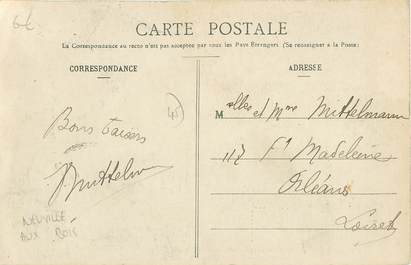 6€
CARTE POSTALE
La Correspondance au recto n'est pas acceptée par tous les Pays Étrangers (Se renseigner à la Poste)
CORRESPONDANCE
ADRESSE
Bons baisers
Mittelm
45
Melles et Mme Mittelmann
117 Fg Madeleine
Orléans
Loiret
NEUVILLE
AUX BOIS